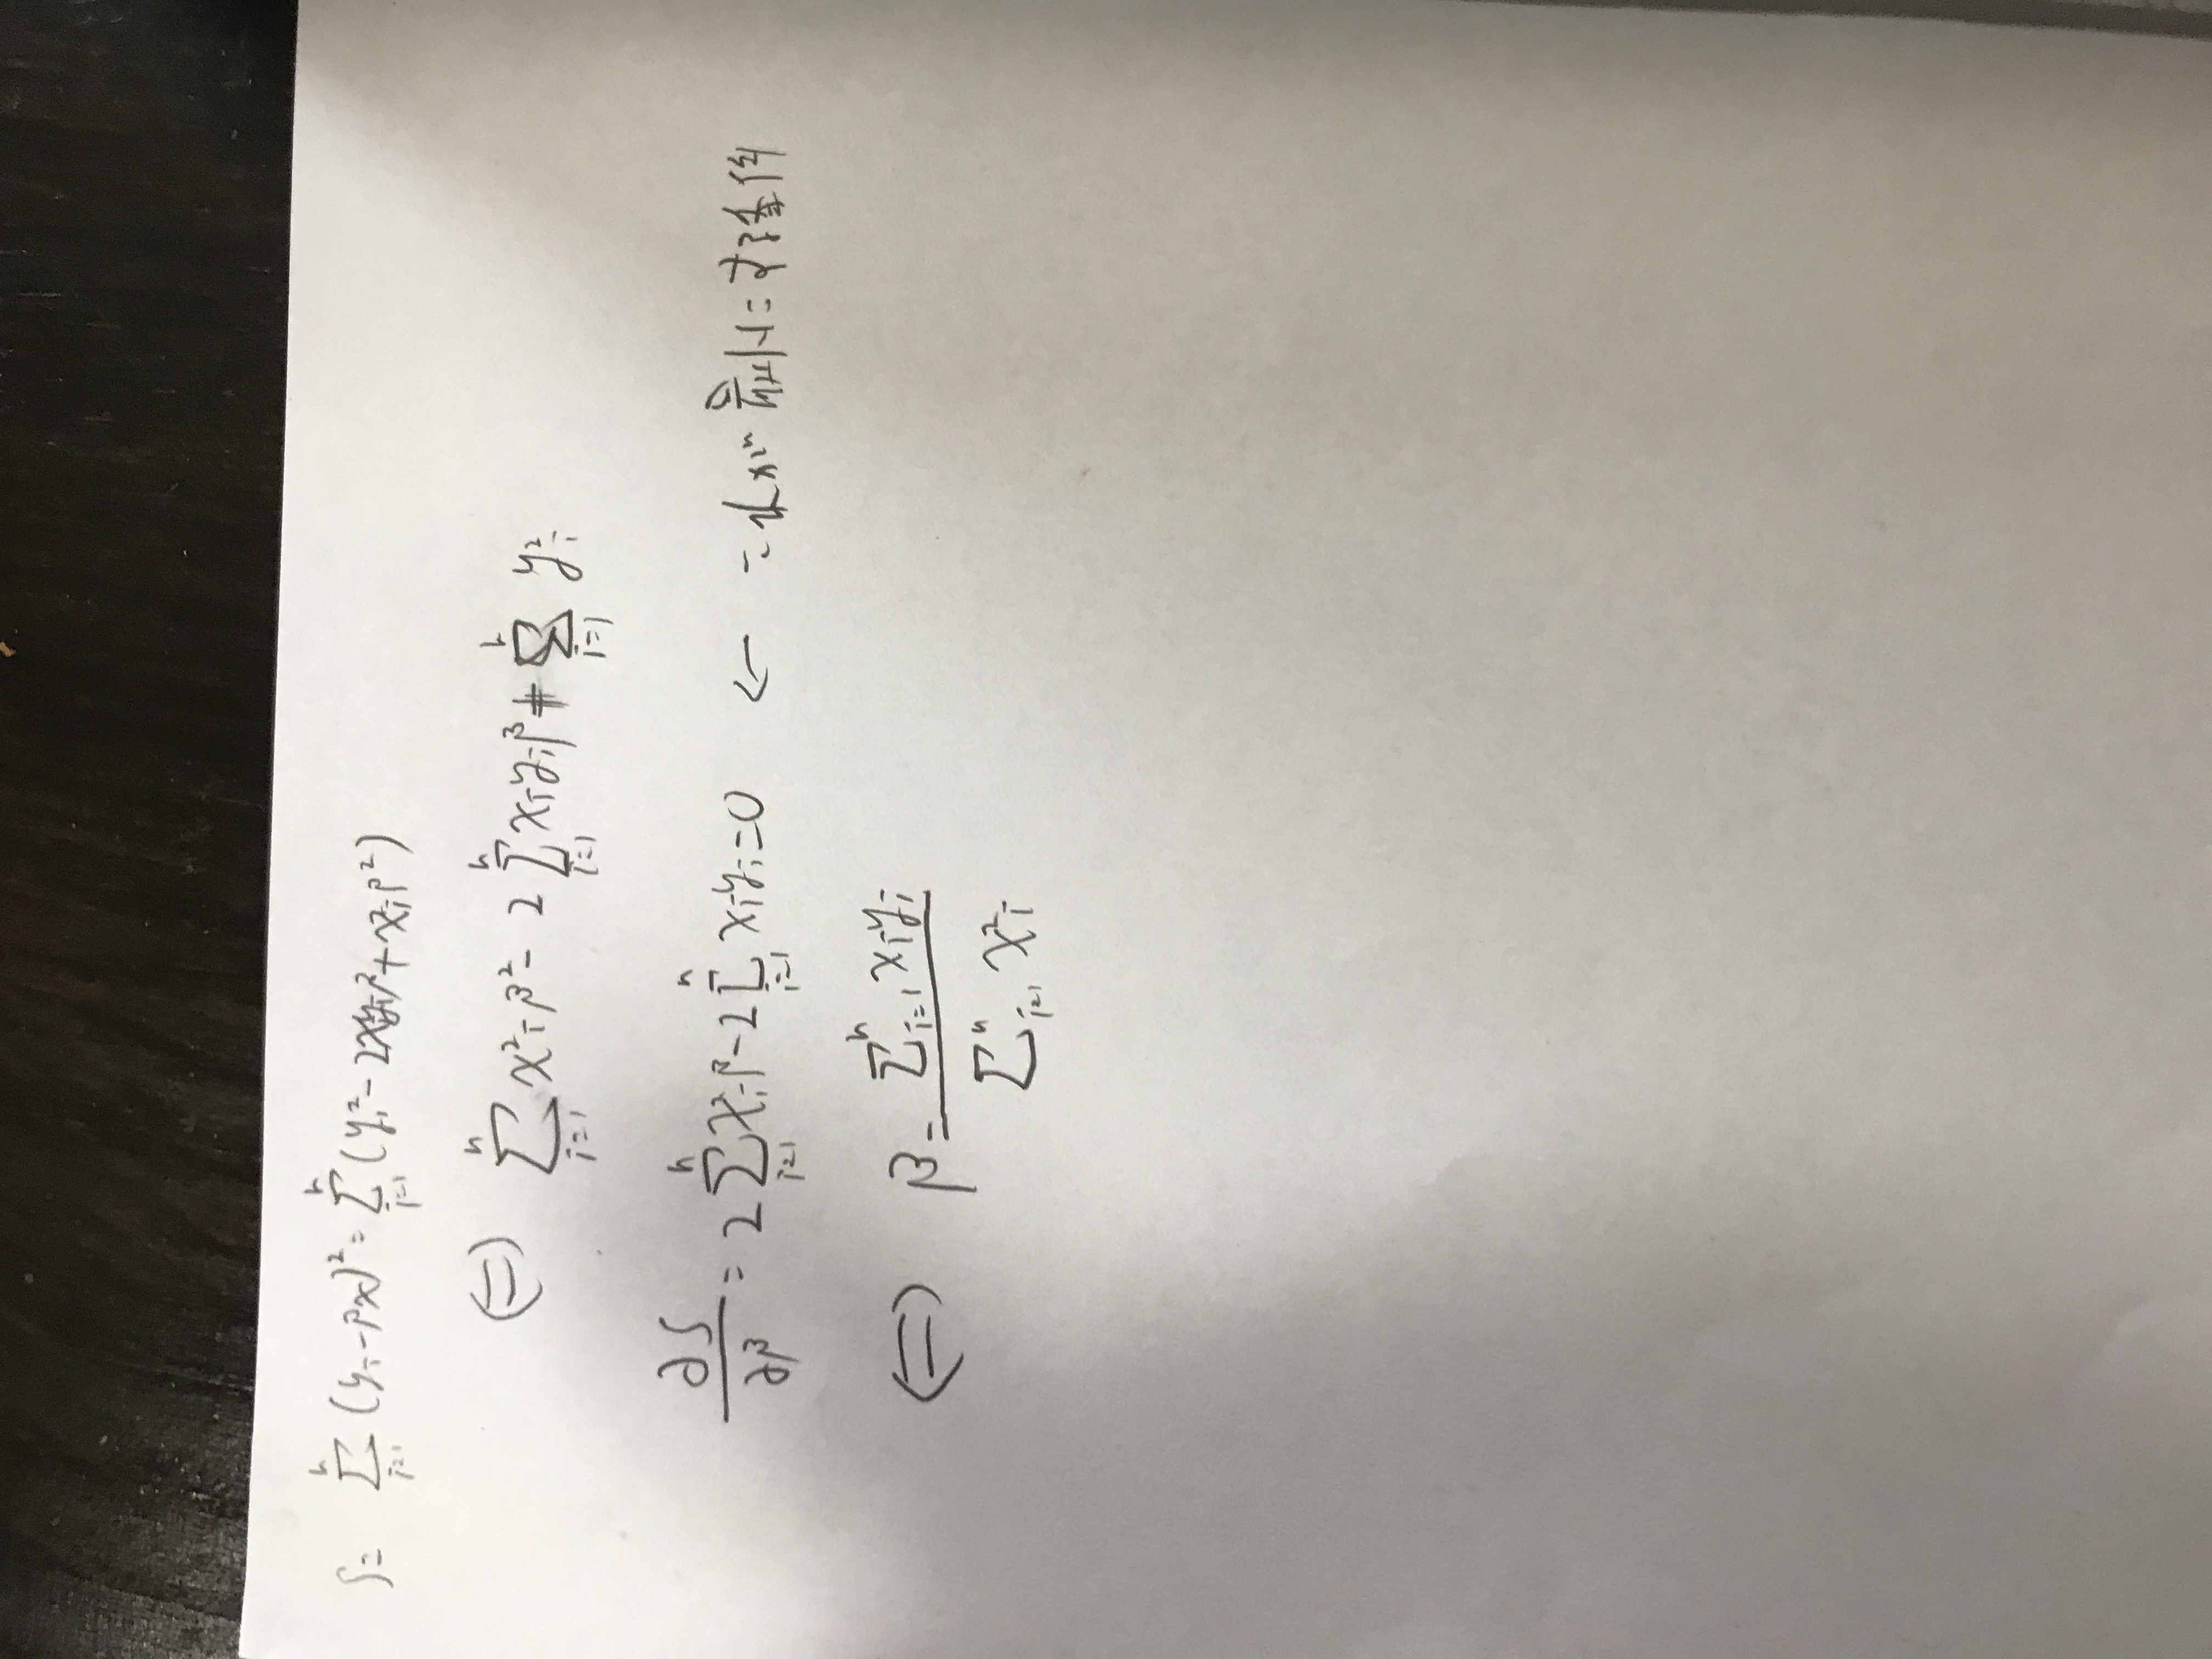 S = Σ_{i=1}^{n} (y_i - βx)² = Σ_{i=1}^{n} (y_i² - 2x_iy_iβ + x_i²β²)
⇔ Σ_{i=1}^{n} x_i²β² - 2 Σ_{i=1}^{n} x_iy_iβ + Σ_{i=1}^{n} y_i²
∂S/∂β = 2 Σ_{i=1}^{n} x_i²β - 2 Σ_{i=1}^{n} x_iy_i = 0 ← 最小にする条件
⇔ β = Σ_{i=1}^{n} x_iy_i / Σ_{i=1}^{n} x_i²